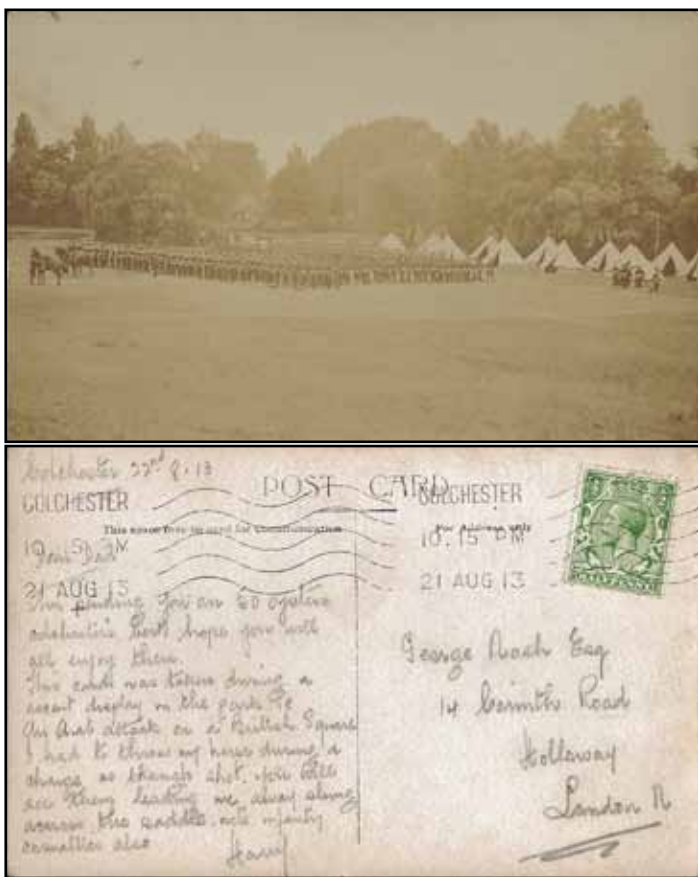 Colchester 22nd 8.13
POST CARD
COLCHESTER
COLCHESTER
This space may be used for Communication
For Address only
10.15 PM
10.15 PM
21 AUG 13
21 AUG 13
Dear Dad
Am sending you 60 oysters
Colchester's best, hope you will
all enjoy them.
This card was taken during a
recent display in the park
An Arab attack on a British Square
I had to throw my horse during a
charge as though shot. You will
see them leading me away slung
across the saddle, note infantry
casualties also
Harry
George Nash Esq
14 Corinth Road
Holloway
London N
HALFPENNY